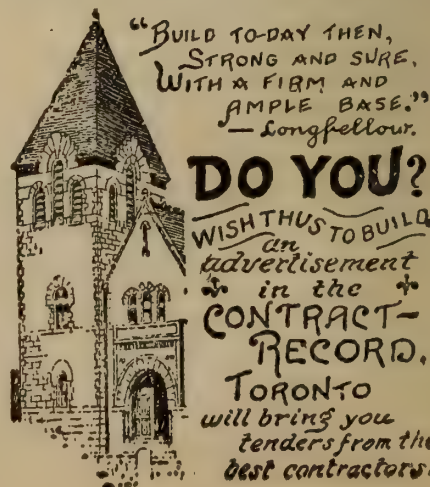 "BUILD TO-DAY THEN,
STRONG AND SURE,
WITH A FIRM AND
AMPLE BASE."
— Longfellow.
DO YOU?
WISH THUS TO BUILD
an
advertisement
in the
CONTRACT-
RECORD,
TORONTO
will bring you
tenders from the
best contractors.